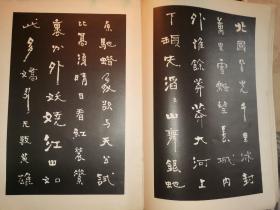 北國風光千里冰封
萬里雪飄望長城内
外惟餘莽莽大河上
下頓失滔滔山舞銀蛇
原馳蠟象欲與天公試
比高須晴日看紅裝素
裹分外妖嬈江山如
此多嬌引無數英雄